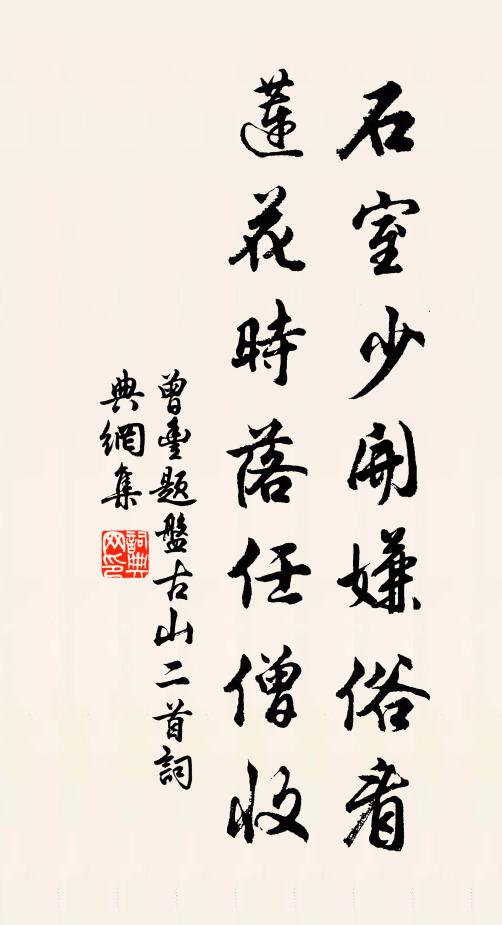 石室少開嫌俗看
蓮花時落任僧收
曾豐題盤古山二首詞
典網集
詞典
网印